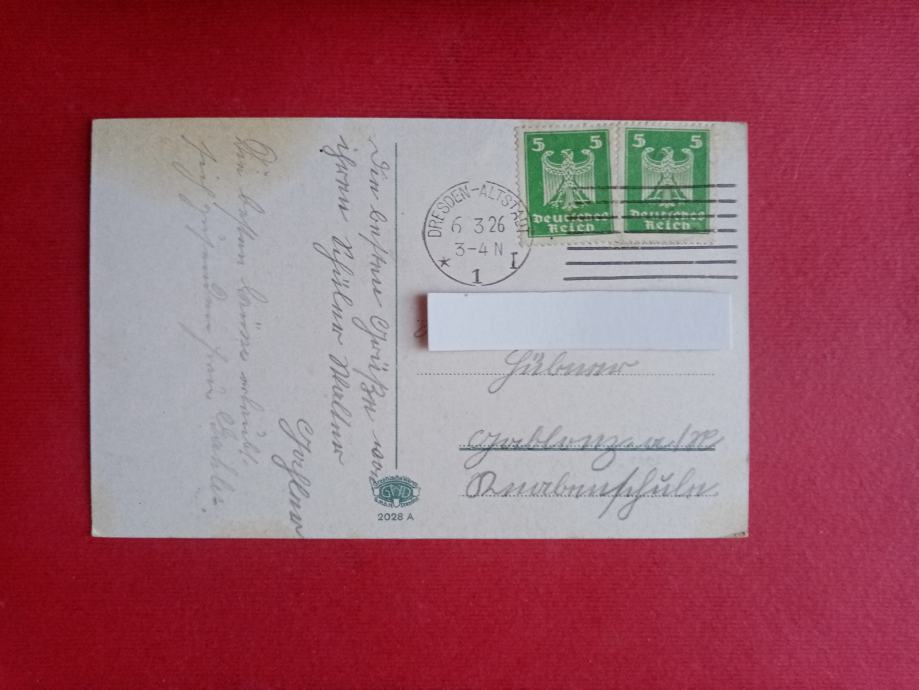 5 5
Deutsches
Reich
5 5
Deutsches
Reich
DRESDEN-ALTSTADT
6 3 26
3-4 N
* 1 I
Hübner
Gablonz a/N
Knabenschule
Die besten Grüße von
ihrem Schüler Walter
Die besten Grüße erlaubt
sich zu senden Frau
GWD
2028 A